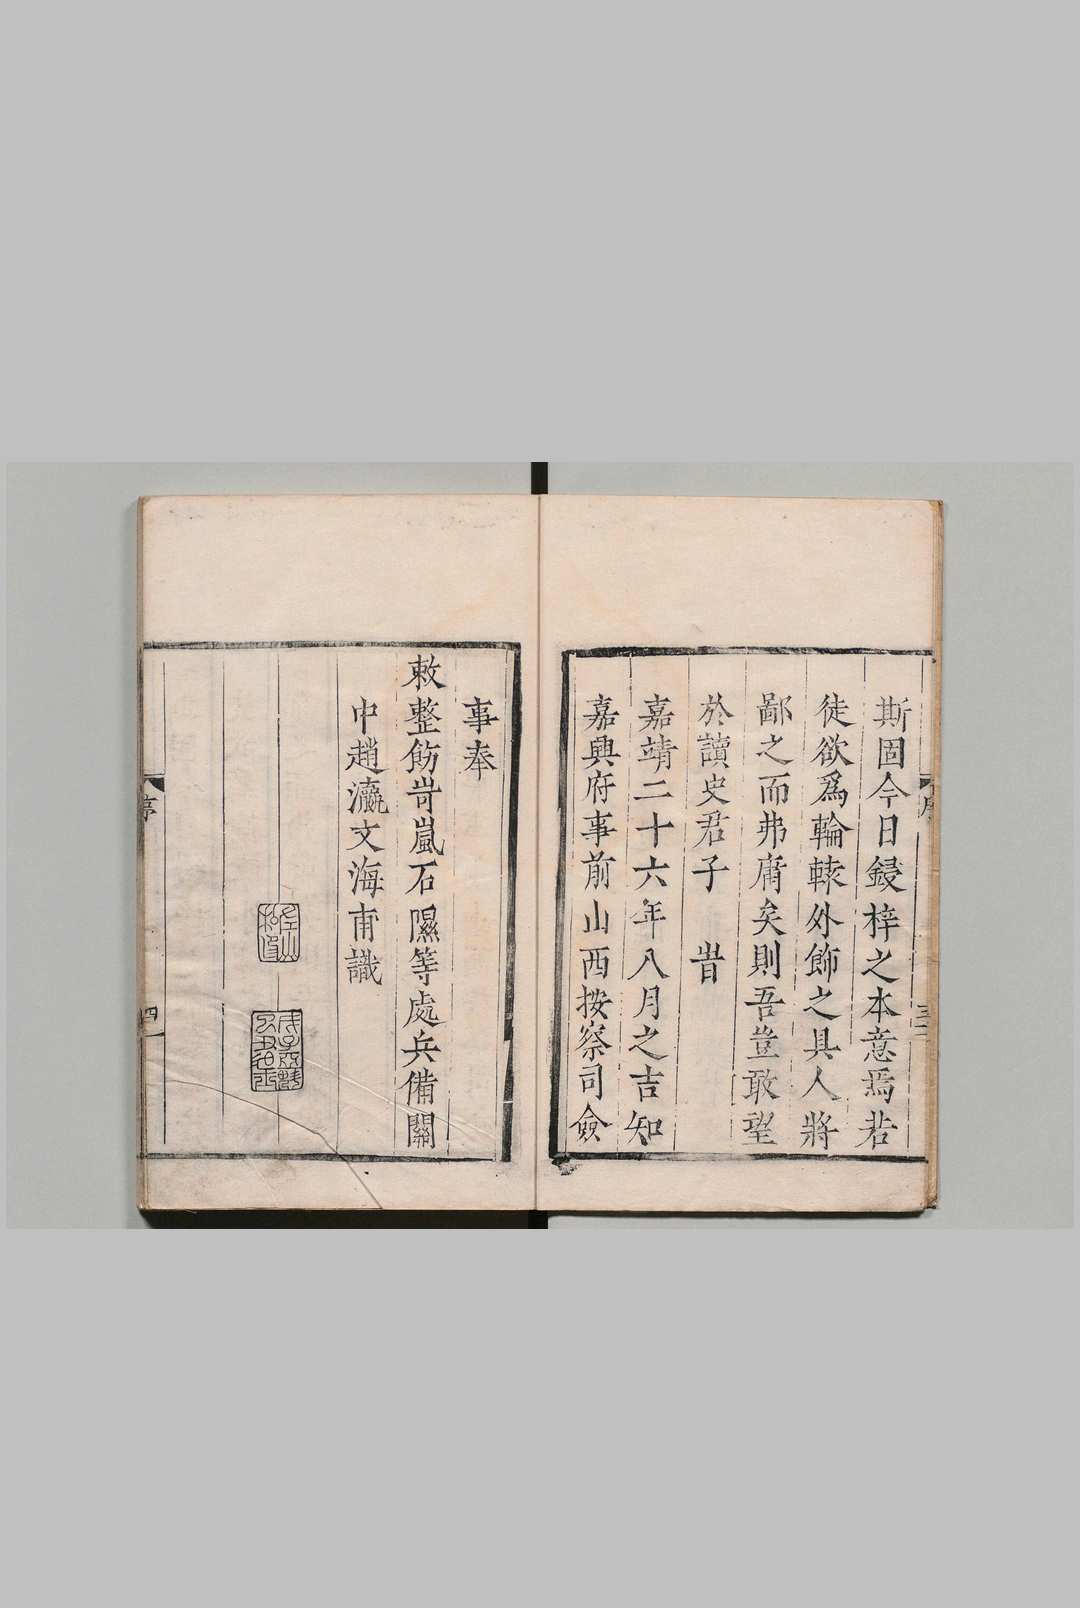 斯固今日鋟梓之本意焉若
徒欲爲輪轅外飾之具人將
鄙之而弗庸矣則吾豈敢望
於讀史君子　旹
嘉靖二十六年八月之吉知
嘉興府事前山西按察司僉
事奉
敕整飭岢嵐石隰等處兵備關
中趙瀛文海甫識
序
四